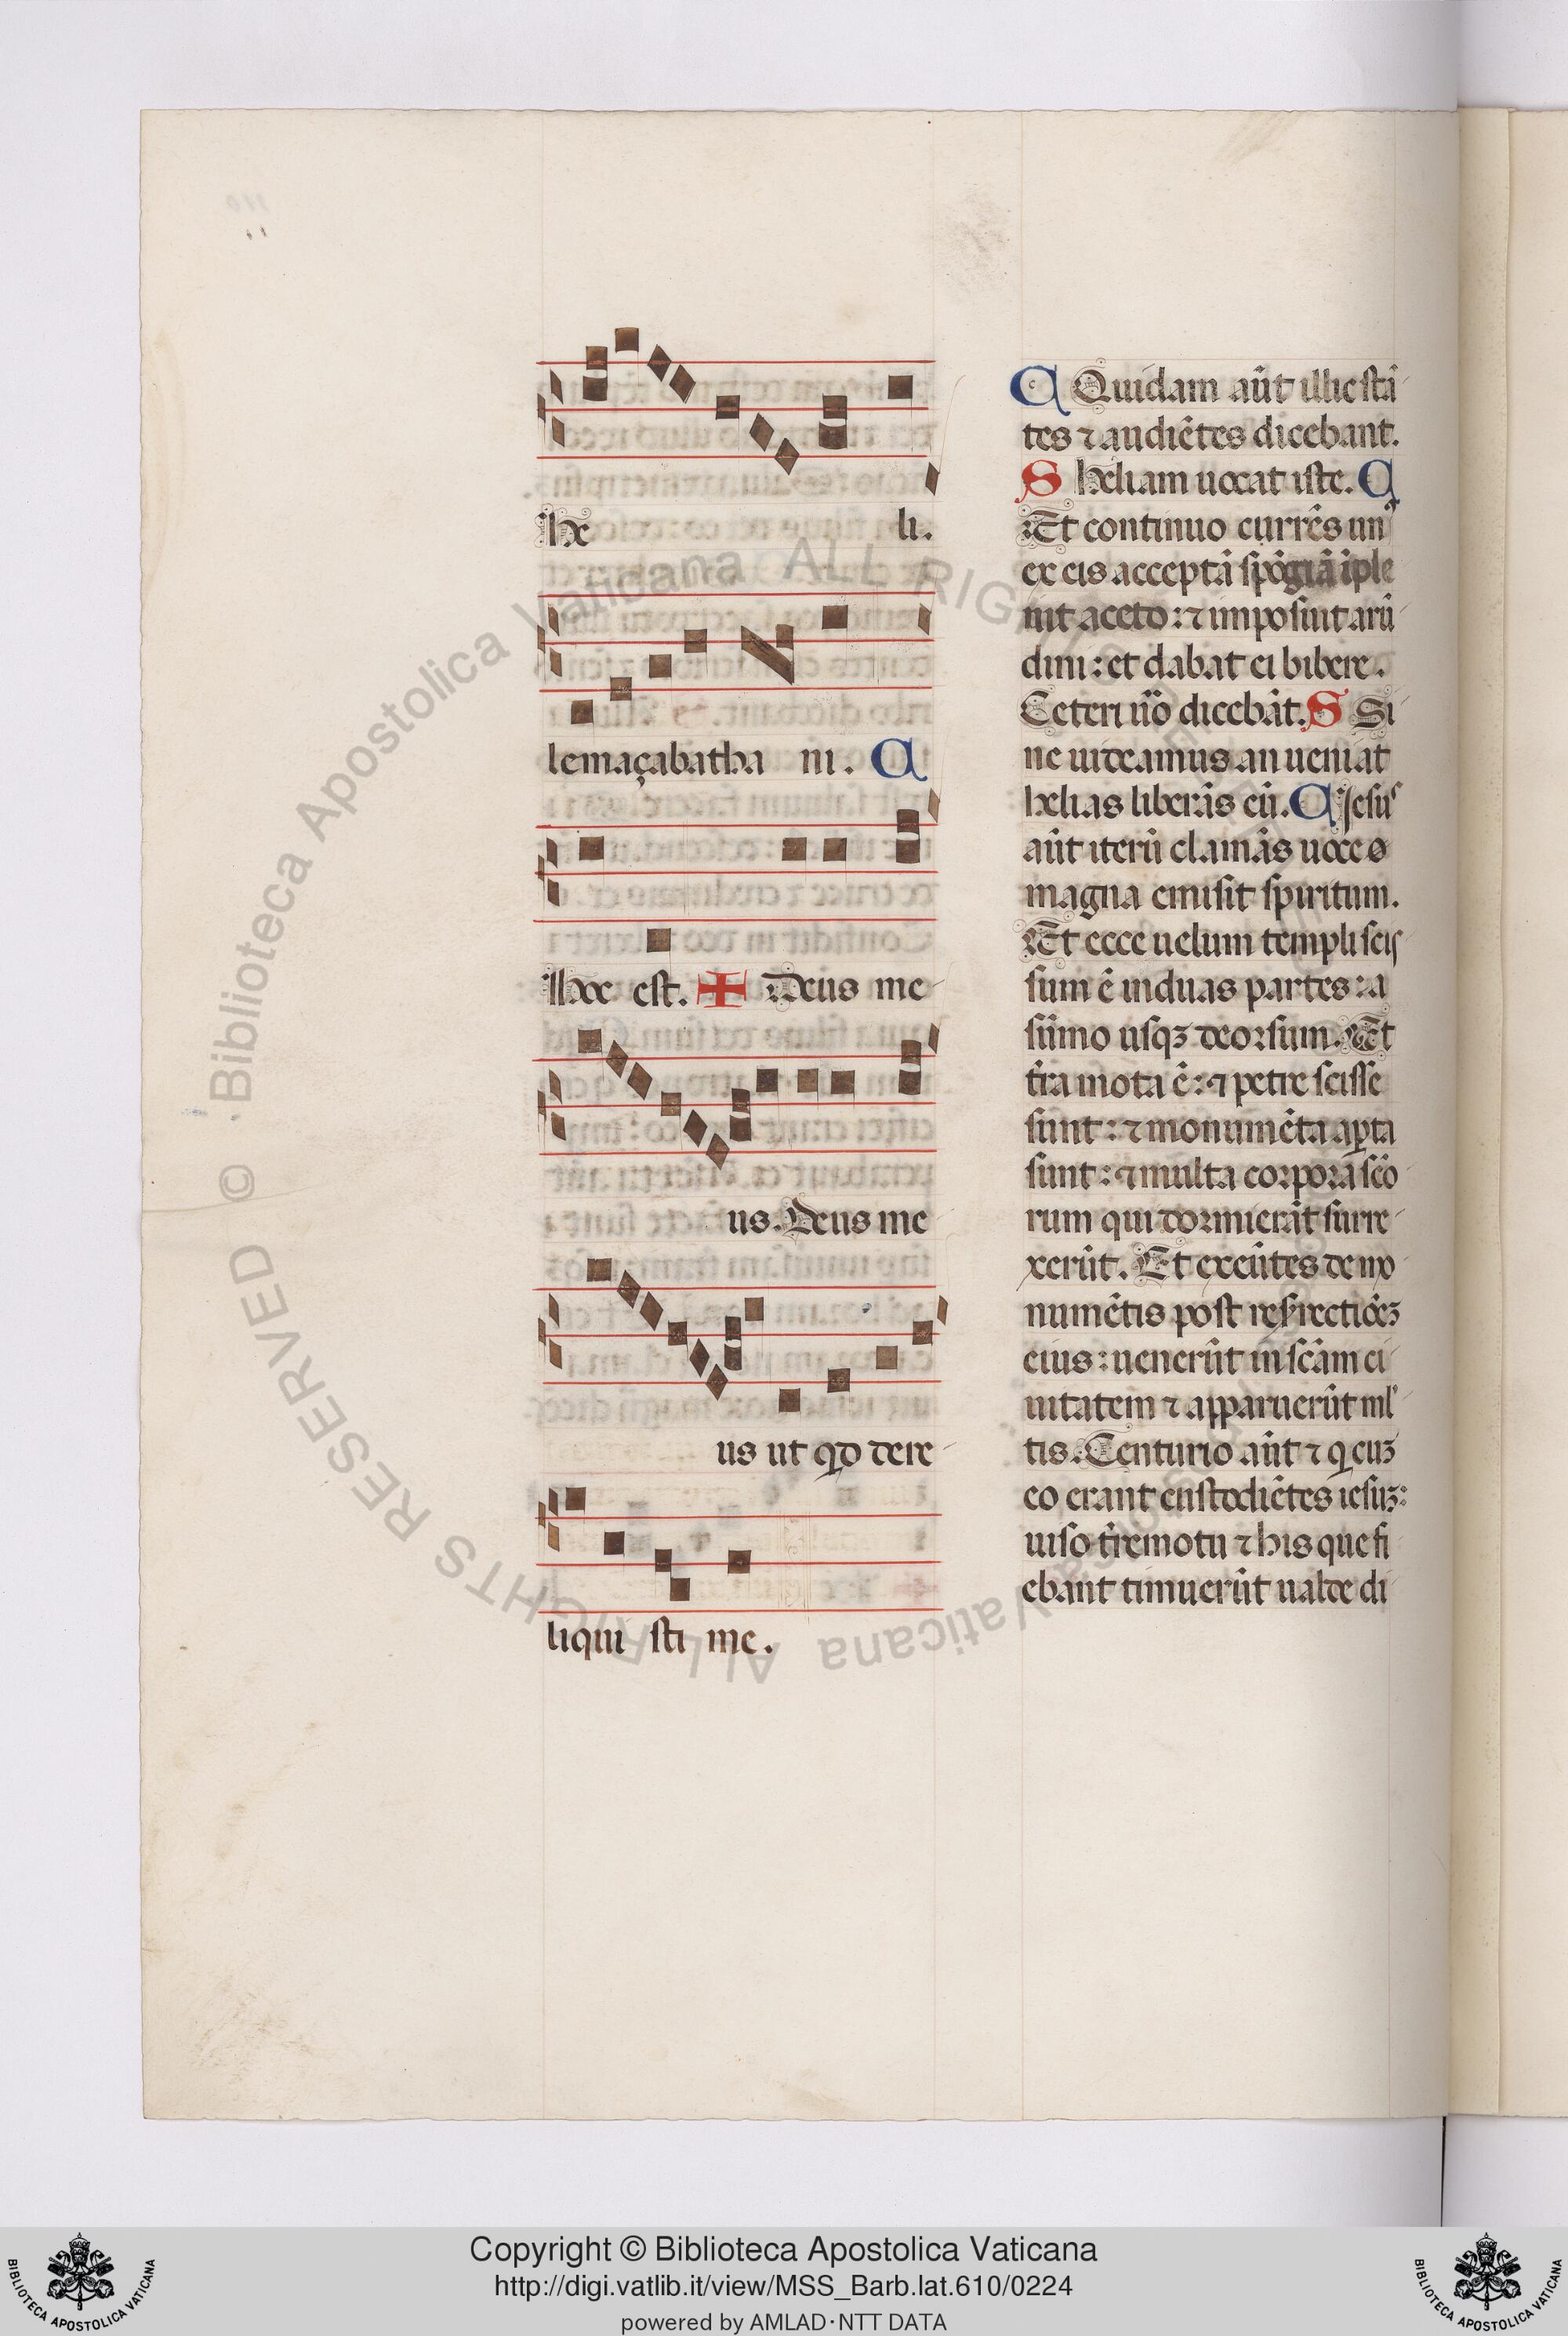 he li.
lemaçabatha ni. C
hoc est. ✠ Deus me
us. Deus me
us ut qd dere
liqui sti me.
C Quidam aût illic stâ
tes ⁊ audiêtes dicebant.
S heliam uocat iste. C
Et continuo currês unꝰ
ex eis acceptâ spôgiâ îple
uit aceto: ⁊ imposuit arû
dini: et dabat ei bibere.
Ceteri uo dicebât. S Si
ne uideamus an ueniat
helias liberâs eû. C Jesus
aût iterû clamâs uoce
magna emisit spiritum.
Et ecce uelum templi scis
sum ê in duas partes: a
sûmo usqꝫ deorsum. Et
tra mota ê: ⁊ petre scisse
sunt: ⁊ monumêta apta
sunt: ⁊ multa corpora scô
rum qui dormierât surre
xerût. Et exeûtes de mo
numêtis post resurrectiôeꝫ
eius: uenerût in scâm ci
uitatem ⁊ apparuerût ml
tis. Centurio aût ⁊ q cuꝫ
eo erant custodiêtes iesuꝫ:
uiso tremotu ⁊ his que fi
ebant timuerût ualde di
© Biblioteca Apostolica Vaticana ALL RIGHTS RESERVED
Copyright © Biblioteca Apostolica Vaticana
http://digi.vatlib.it/view/MSS_Barb.lat.610/0224
powered by AMLAD·NTT DATA
BIBLIOTECA APOSTOLICA VATICANA
BIBLIOTECA APOSTOLICA VATICANA